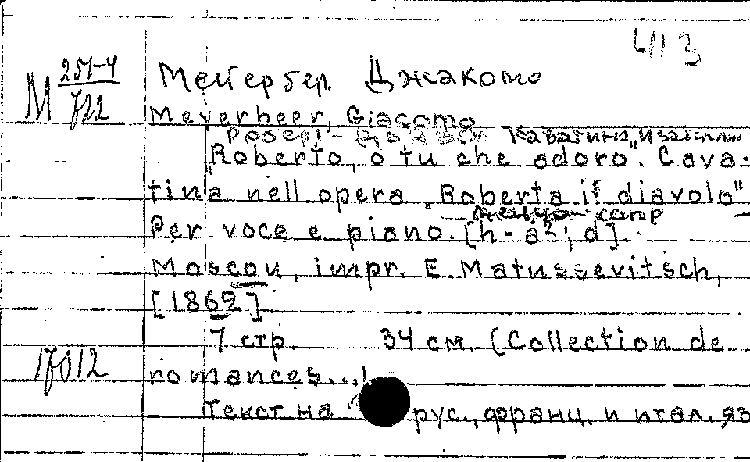 413
М 251-4/722
Мейербер Джакомо
Meyerbeer, Giacomo
Каватина
„Roberto, o tu che adoro. Cava-
tina nell opera „Roberta il diavolo"
Per voce e piano. [h-a²; d].
Moscou, impr. E. Matussevitsch,
[1862]
7 стр. 34 см. (Collection de
17012
romances...)
Текст на рус., франц. и итал. яз